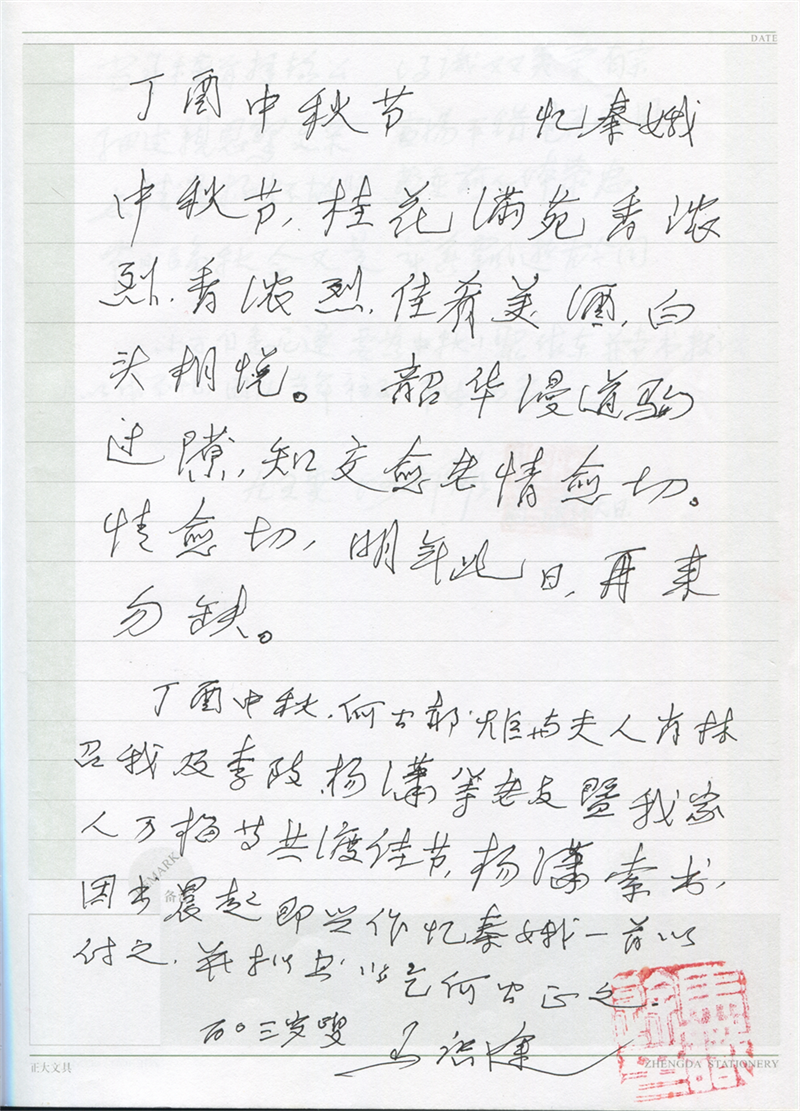 DATE
丁酉中秋节 忆秦娥
中秋节,桂花满苑香浓
烈.香浓烈,佳肴美酒,白
头相悦。 韶华漫道驹
过隙,知交愈老情愈切。
情愈切,明年此日,再来
勿缺。
丁酉中秋.何公郝炬与夫人肖林
召我及李致、杨潇等老友暨我家
人万梅等共渡佳节,杨潇索书,
因书晨起即兴作忆秦娥一首以
付之.并拟出以乞何公正之.
百〇三岁叟 马识途
MARK
备
正大文具
ZHENGDA STATIONERY